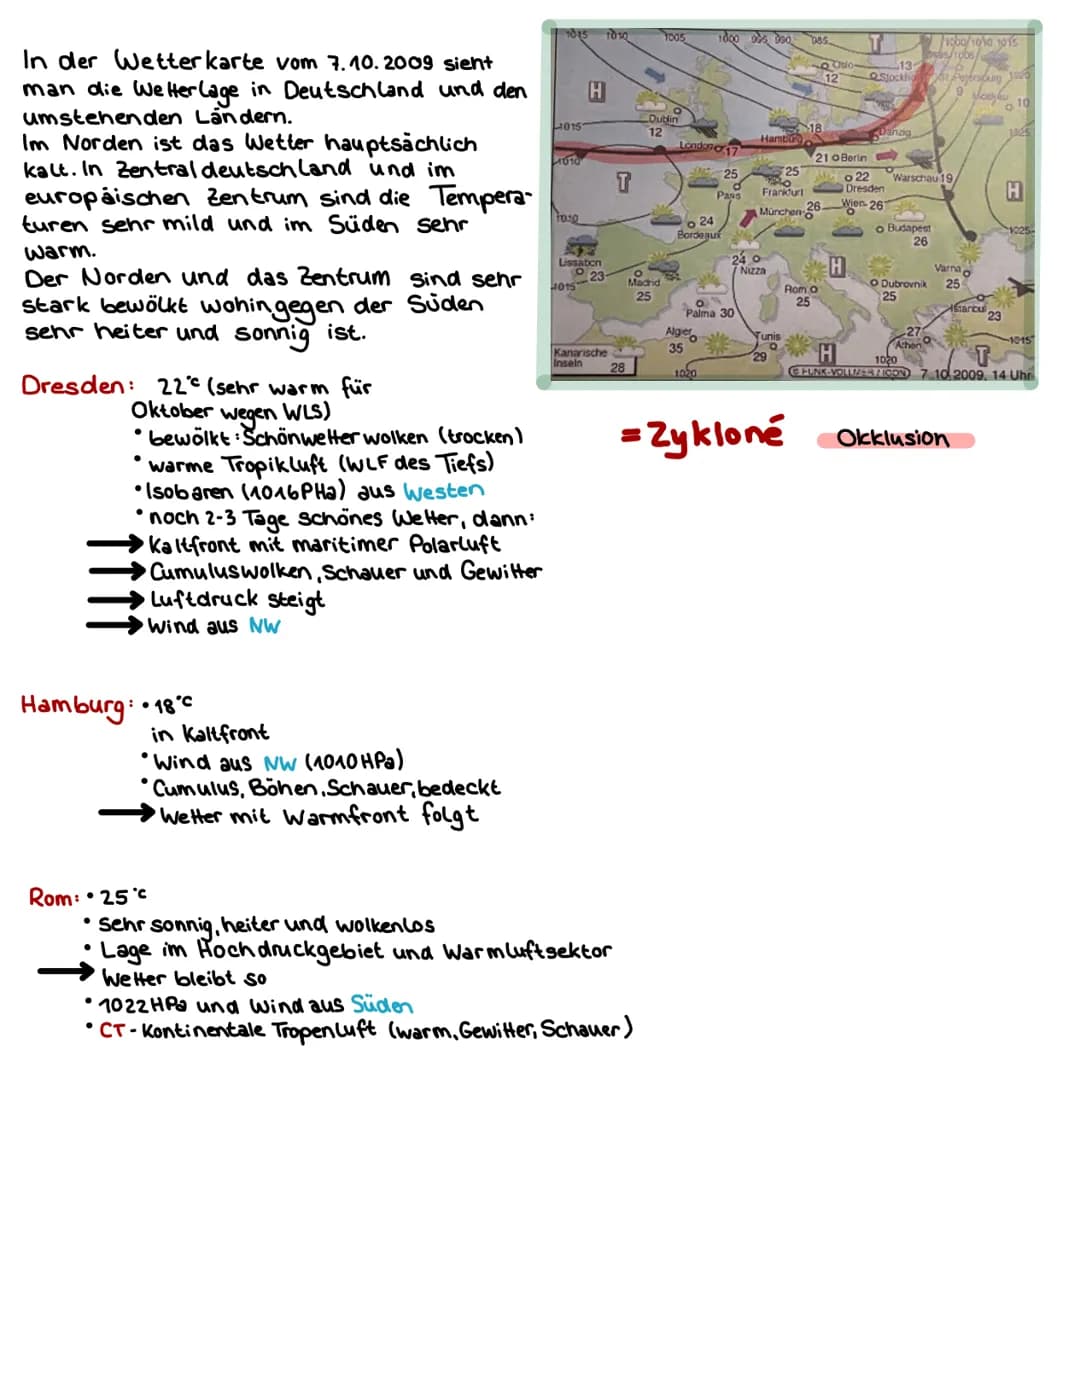 In der Wetterkarte vom 7.10.2009 sieht
man die Wetterlage in Deutschland und den
umstehenden Ländern.
Im Norden ist das Wetter hauptsächlich
kalt. In Zentraldeutschland und im
europäischen Zentrum sind die Tempera-
turen sehr mild und im Süden sehr
warm.
Der Norden und das Zentrum sind sehr
stark bewölkt wohingegen der Süden
sehr heiter und sonnig ist.
1015 1010 1005 1000 995 990 985
T
1000/1010 1015
H
Oslo
12
13
Stockholm
St. Petersburg
9
Moskau
10
1015
Dublin
12
18
Hamburg
Danzig
1025
1010
London 17
21 Berlin
T
25
Paris
25
Frankfurt
22
Dresden
Warschau 19
H
1010
24
Bordeaux
München
26
Wien 26
Budapest
26
1025
Lissabon
23
24
Nizza
H
Varna
25
1015
Madrid
25
Rom
25
Dubrovnik
25
Palma 30
Istanbul
23
Algier
35
Tunis
29
27
Athen
1015
Kanarische
Inseln 28
1020
H
1020
T
© FUNK-VOLLMER / ICON 7.10.2009, 14 Uhr
= Zykloné Okklusion
Dresden: 22°C (sehr warm für
Oktober wegen WLS)
• bewölkt: Schönwetterwolken (trocken)
• warme Tropikluft (WLF des Tiefs)
• Isobaren (1016PHa) aus Westen
• noch 2-3 Tage schönes Wetter, dann:
→ Kaltfront mit maritimer Polarluft
→ Cumuluswolken, Schauer und Gewitter
→ Luftdruck steigt
→ Wind aus NW
Hamburg: • 18°C
in Kaltfront
• Wind aus NW (1010HPa)
• Cumulus, Böhen, Schauer, bedeckt
→ Wetter mit Warmfront folgt
Rom: • 25°C
• Sehr sonnig, heiter und wolkenlos
• Lage im Hochdruckgebiet und Warmluftsektor
→ Wetter bleibt so
• 1022HPa und Wind aus Süden
• CT - Kontinentale Tropenluft (warm, Gewitter, Schauer)